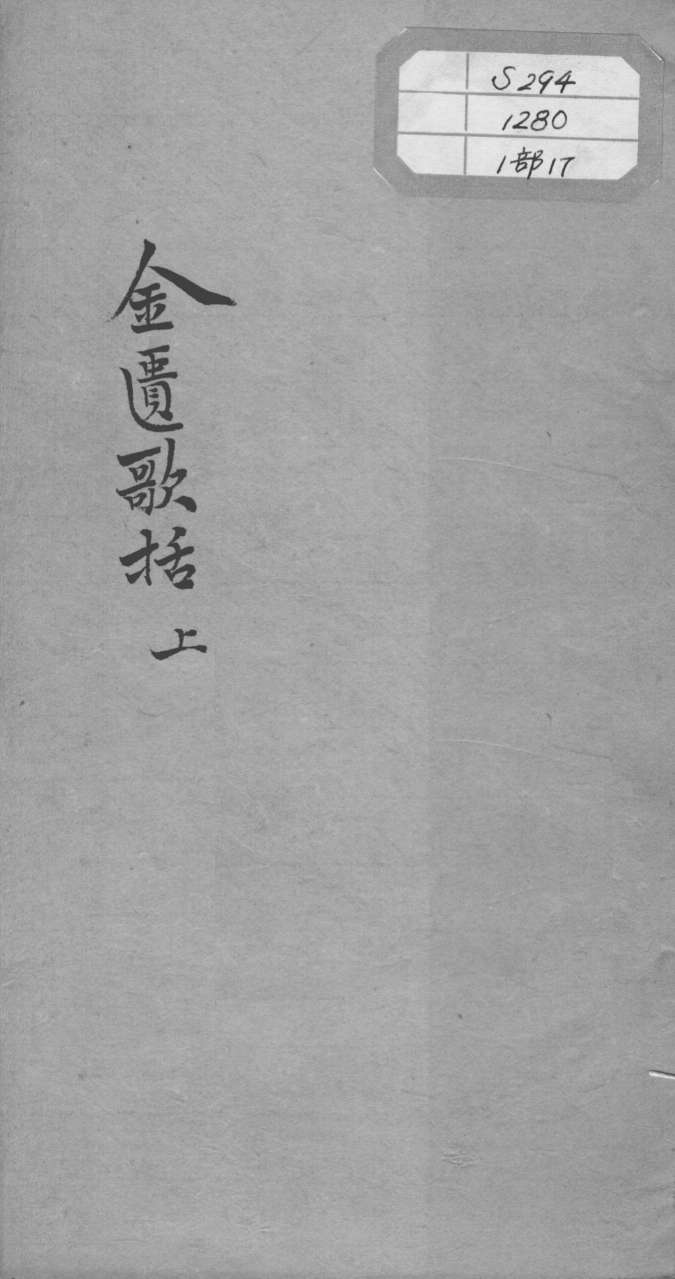 S294
1280
1部17
金匱歌括 上